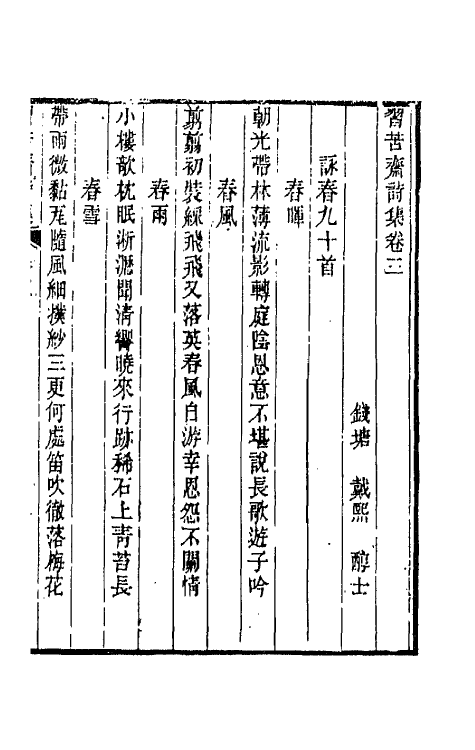 習苦齋詩集卷三
錢塘 戴熙 醇士
詠春九十首
春暉
朝光帶林薄流影轉庭陰恩意不堪說長歌遊子吟
春風
剪剪初裝綵飛飛又落英春風自游幸恩怨不關情
春雨
小樓欹枕眠淅瀝聞清響曉來行跡稀石上青苔長
春雪
帶雨微黏瓦隨風細撲紗三更何處笛吹徹落梅花